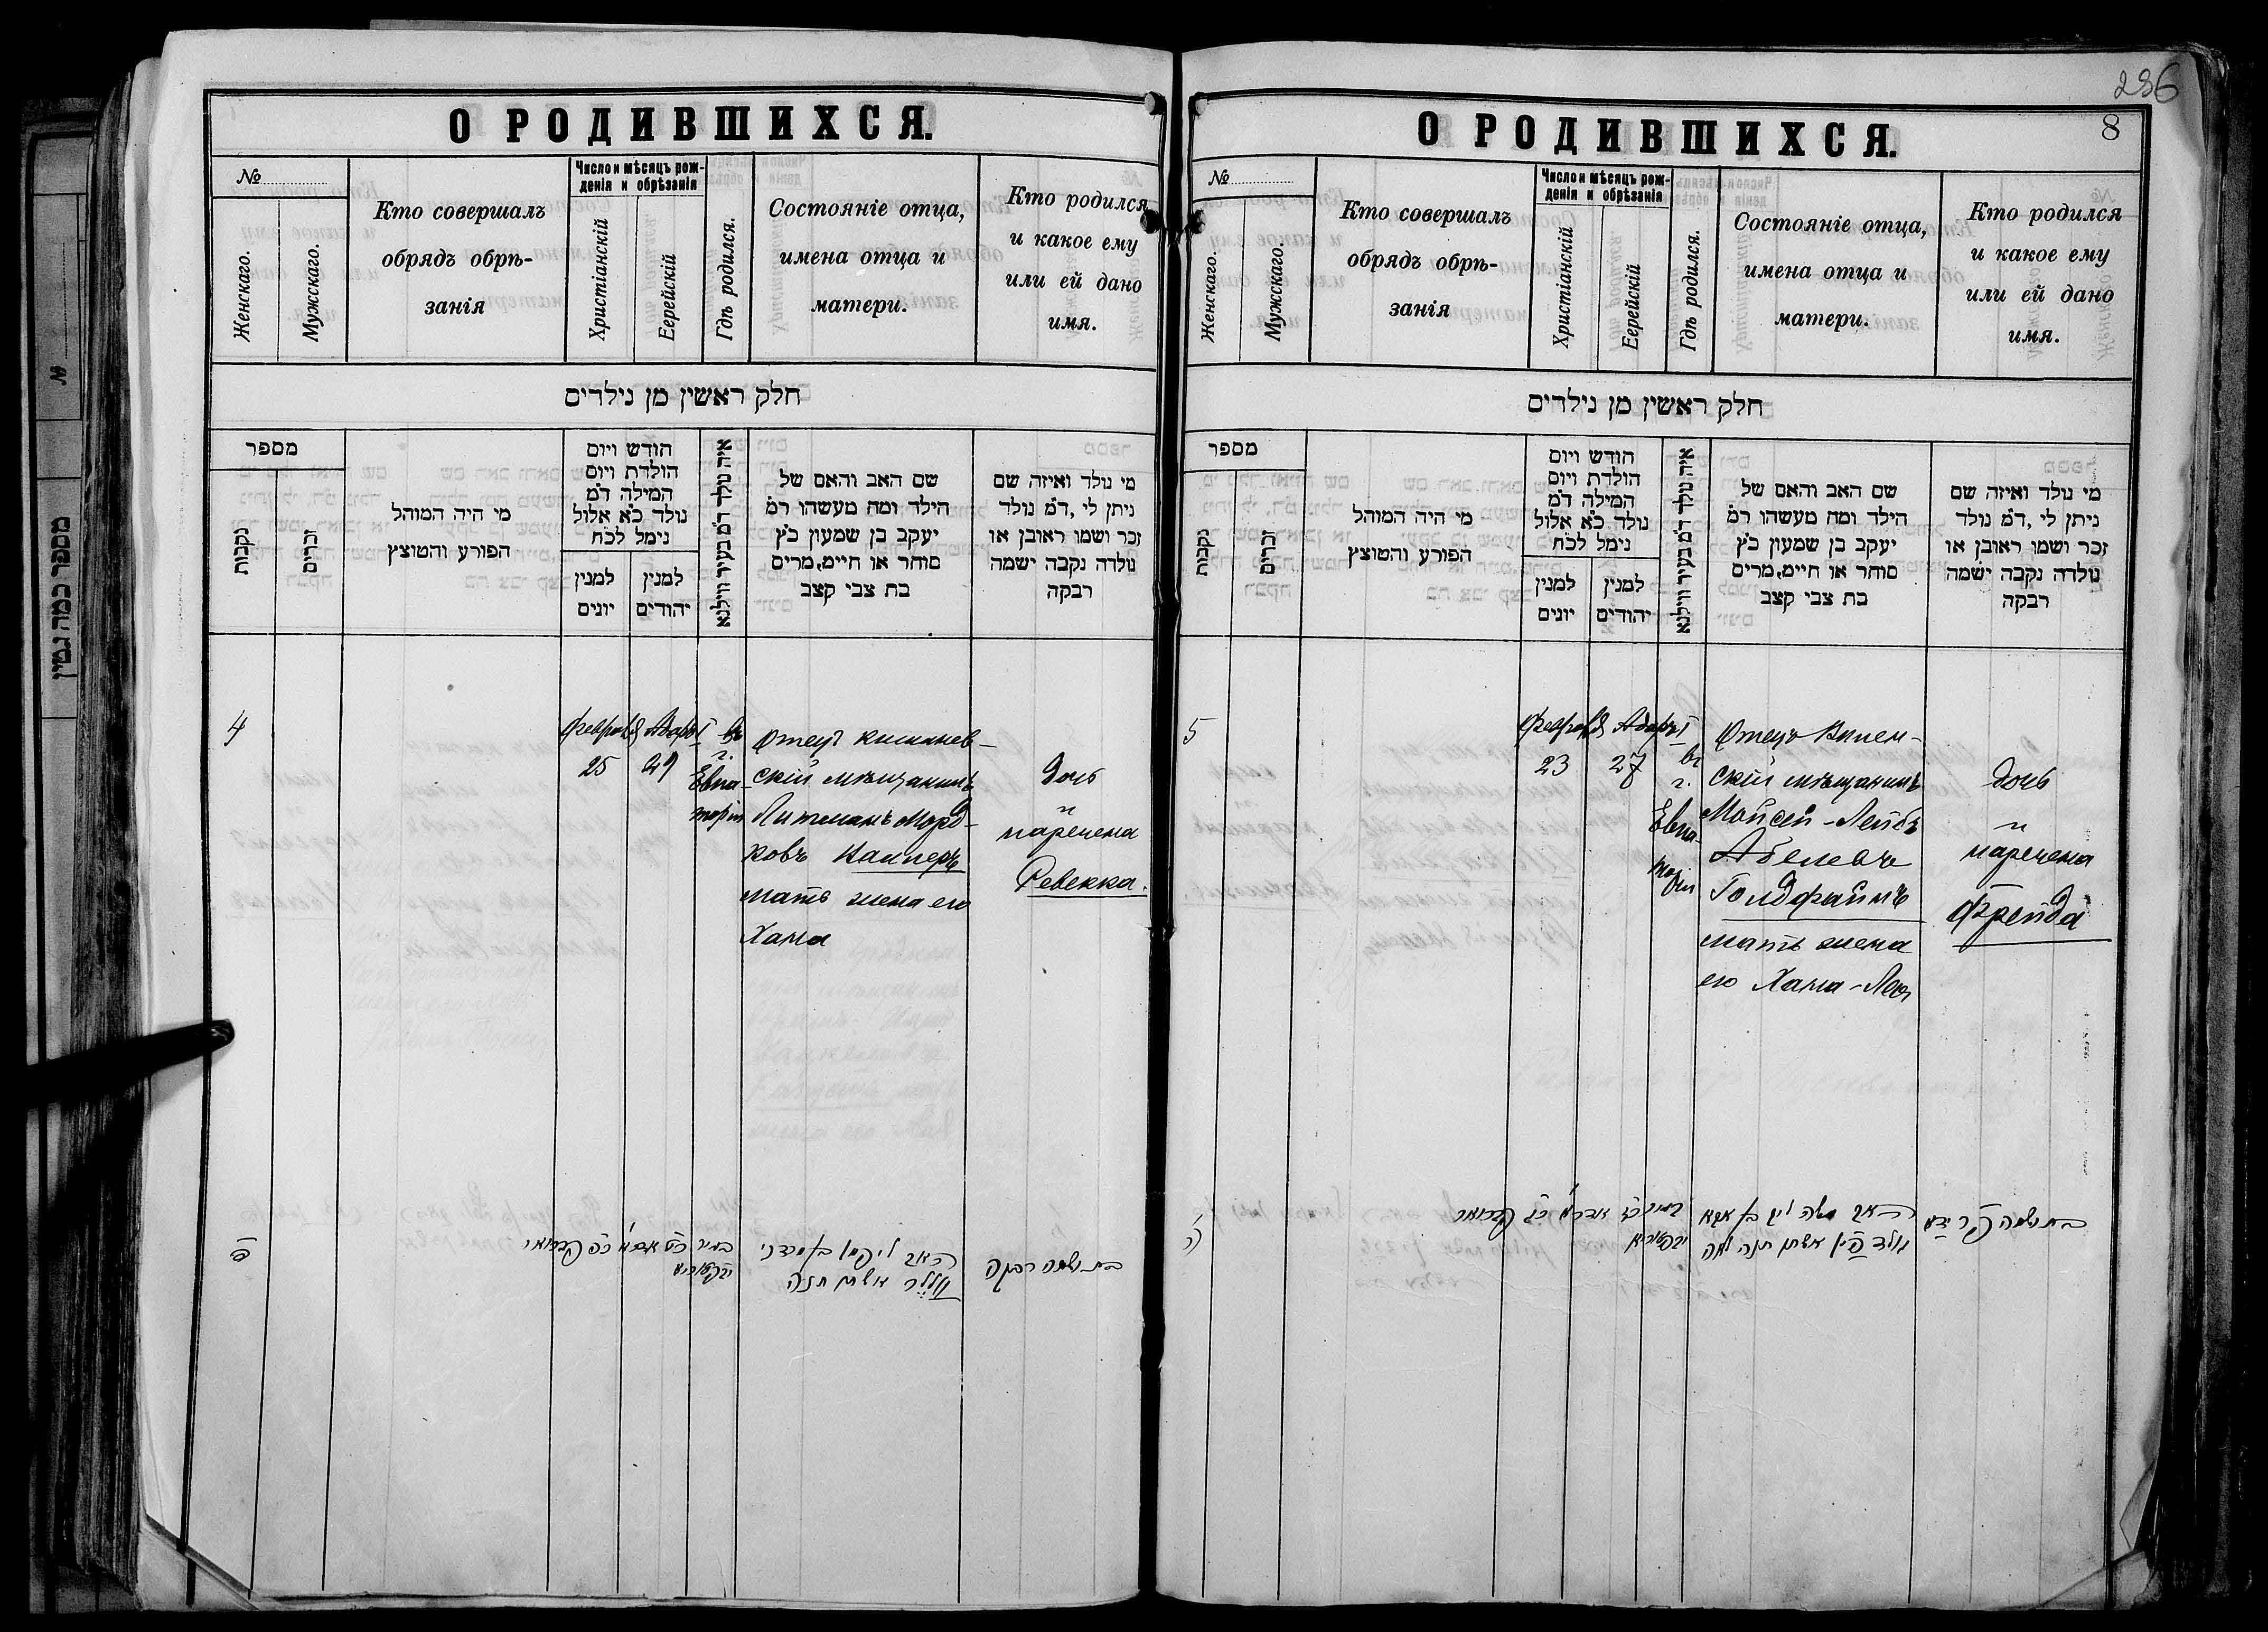 О РОДИВШИХСЯ.
№
Женскаго.
Мужскаго.
Кто совершалъ
обрядъ обрѣ-
занія
Число и мѣсяцъ рож-
денія и обрѣзанія
Христіанскій
Еерейскій
Гдѣ родился.
Состояніе отца,
имена отца и
матери.
Кто родился
и какое ему
или ей дано
имя.
חלק ראשין מן נילדים
מספר
נקבות
זכרים
מי היה המוהל
הפורע והמוצץ
חודש ויום
הולדת ויום
המילה דמ
נולד כא אלול
נימל לכח
למנין
יונים
למנין
יהודים
איה נולד דמ בעיר ווילנא
שם האב והאם של
הילד ומה מעשהו רמ
יעקב בן שמעון כץ
סוחר או חיים, מרים
בת צבי קצב
מי נולד ואיזה שם
ניתן לי, דמ נולד
זכר ושמו ראובן או
נולדה נקבה ישמה
רבקה
4
Февраля
25
Адаръ I
29
Въ
г.
Евпа-
торіи
Отецъ кишинев-
скій мѣщанинъ
Литманъ Морд-
ковъ
мать жена его
Хана
дочь
и
наречена
Ревекка.
בת ושמה רבקה
אשתו חנה
О РОДИВШИХСЯ.
286
8
№
Женскаго.
Мужскаго.
Кто совершалъ
обрядъ обрѣ-
занія
Число и мѣсяцъ рож-
денія и обрѣзанія
Христіанскій
Еерейскій
Гдѣ родился.
Состояніе отца,
имена отца и
матери.
Кто родился
и какое ему
или ей дано
имя.
חלק ראשין מן נילדים
מספר
נקבות
זכרים
מי היה המוהל
הפורע והמוצץ
חודש ויום
הולדת ויום
המילה דמ
נולד כא אלול
נימל לכח
למנין
יונים
למנין
יהודים
איה נולד דמ בעיר ווילנא
שם האב והאם של
הילד ומה מעשהו רמ
יעקב בן שמעון כץ
סוחר או חיים, מרים
בת צבי קצב
מי נולד ואיזה שם
ניתן לי, דמ נולד
זכר ושמו ראובן או
נולדה נקבה ישמה
רבקה
5
Февраля
23
Адаръ I
27
въ
г.
Евпа-
торіи
Отецъ Вилен-
скій мѣщанинъ
Мойсей-Лейбъ
Абелевъ
Голдфайнъ
мать жена
его Хана-Лея
дочь
и
наречена
Фрейда
בת ושמה פריידא
גולדפיין אשתו חנה לאה